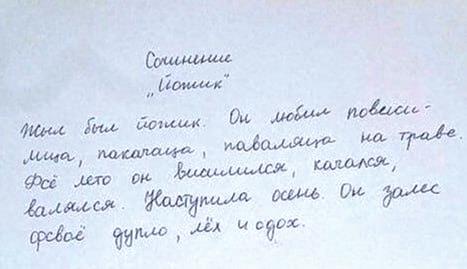 Сочинение
„Йожик"
Жыл был йожик. Он любил повесси-
лица, пакачаца, паваляца на траве.
Фсё лето он висилился, качался,
валялся. Наступила осень. Он залес
фсваё дупло, лёх и одох.